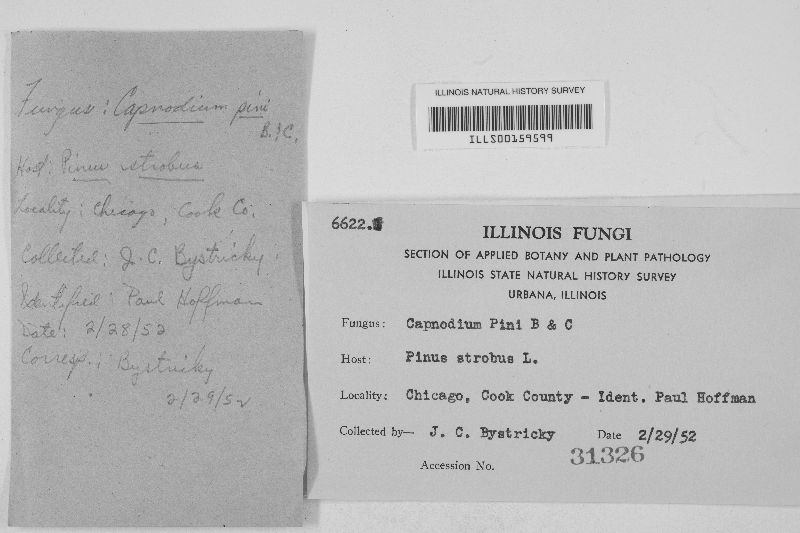 Fungus: Capnodium pini
B. & C.
Host: Pinus strobus
Locality: Chicago, Cook Co.
Collected: J. C. Bystricky.
Identified: Paul Hoffman
Date: 2/28/52
Corresp.: Bystricky
2/29/52
ILLINOIS NATURAL HISTORY SURVEY
ILLS00159599
6622.
ILLINOIS FUNGI
SECTION OF APPLIED BOTANY AND PLANT PATHOLOGY
ILLINOIS STATE NATURAL HISTORY SURVEY
URBANA, ILLINOIS
Fungus: Capnodium Pini B & C
Host: Pinus strobus L.
Locality: Chicago, Cook County - Ident. Paul Hoffman
Collected by— J. C. Bystricky Date 2/29/52
Accession No. 31326